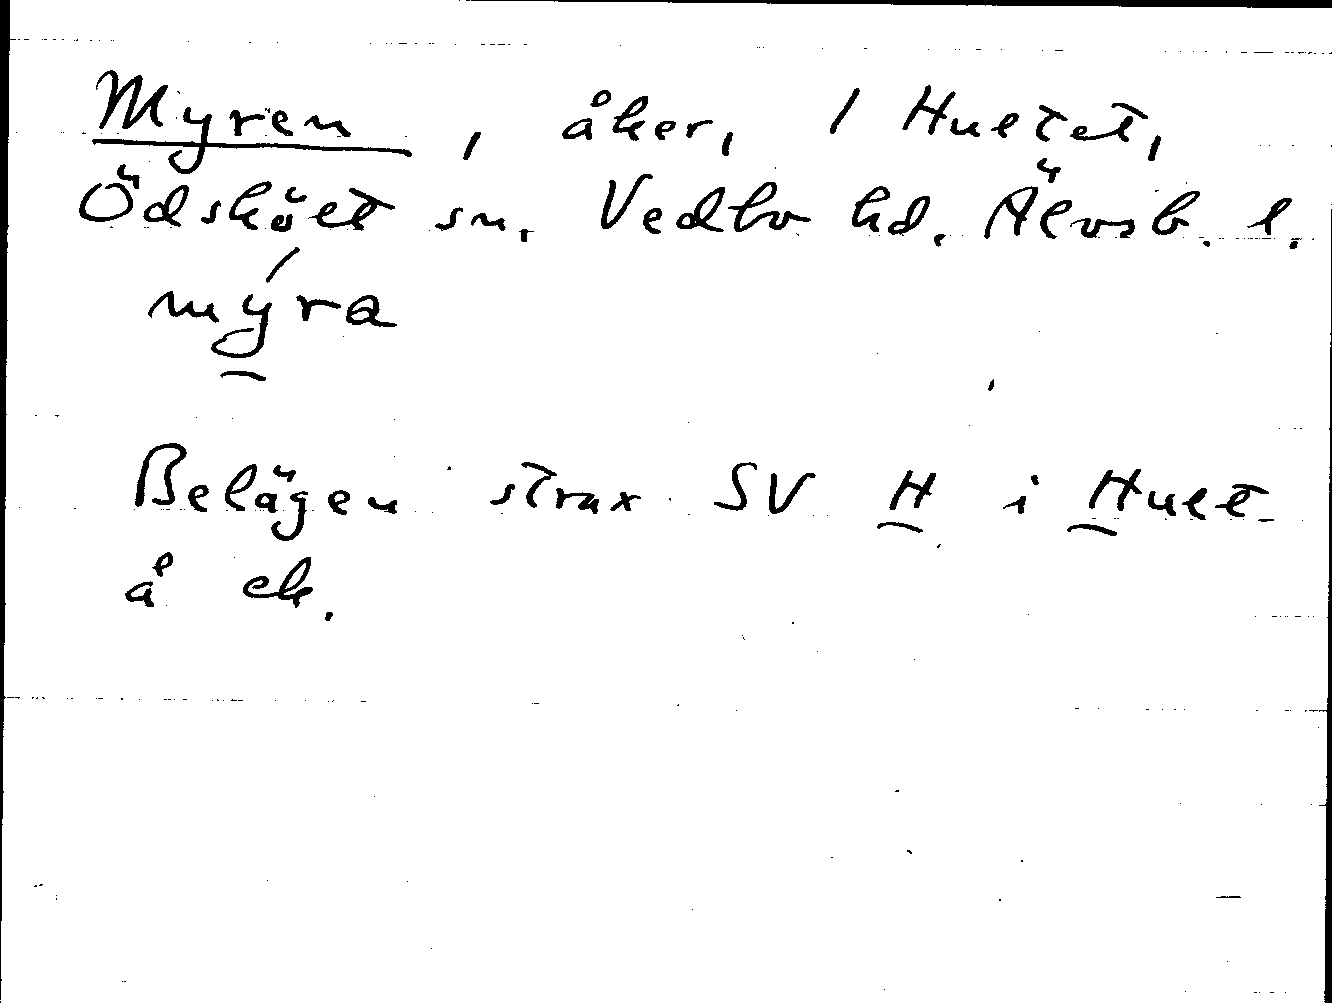 Myren, åker, 1 Hultet,
Ödskölt sn. Vedbo hd. Älvsb. l.
mýra
Belägen strax SV H i Hult
å ek.